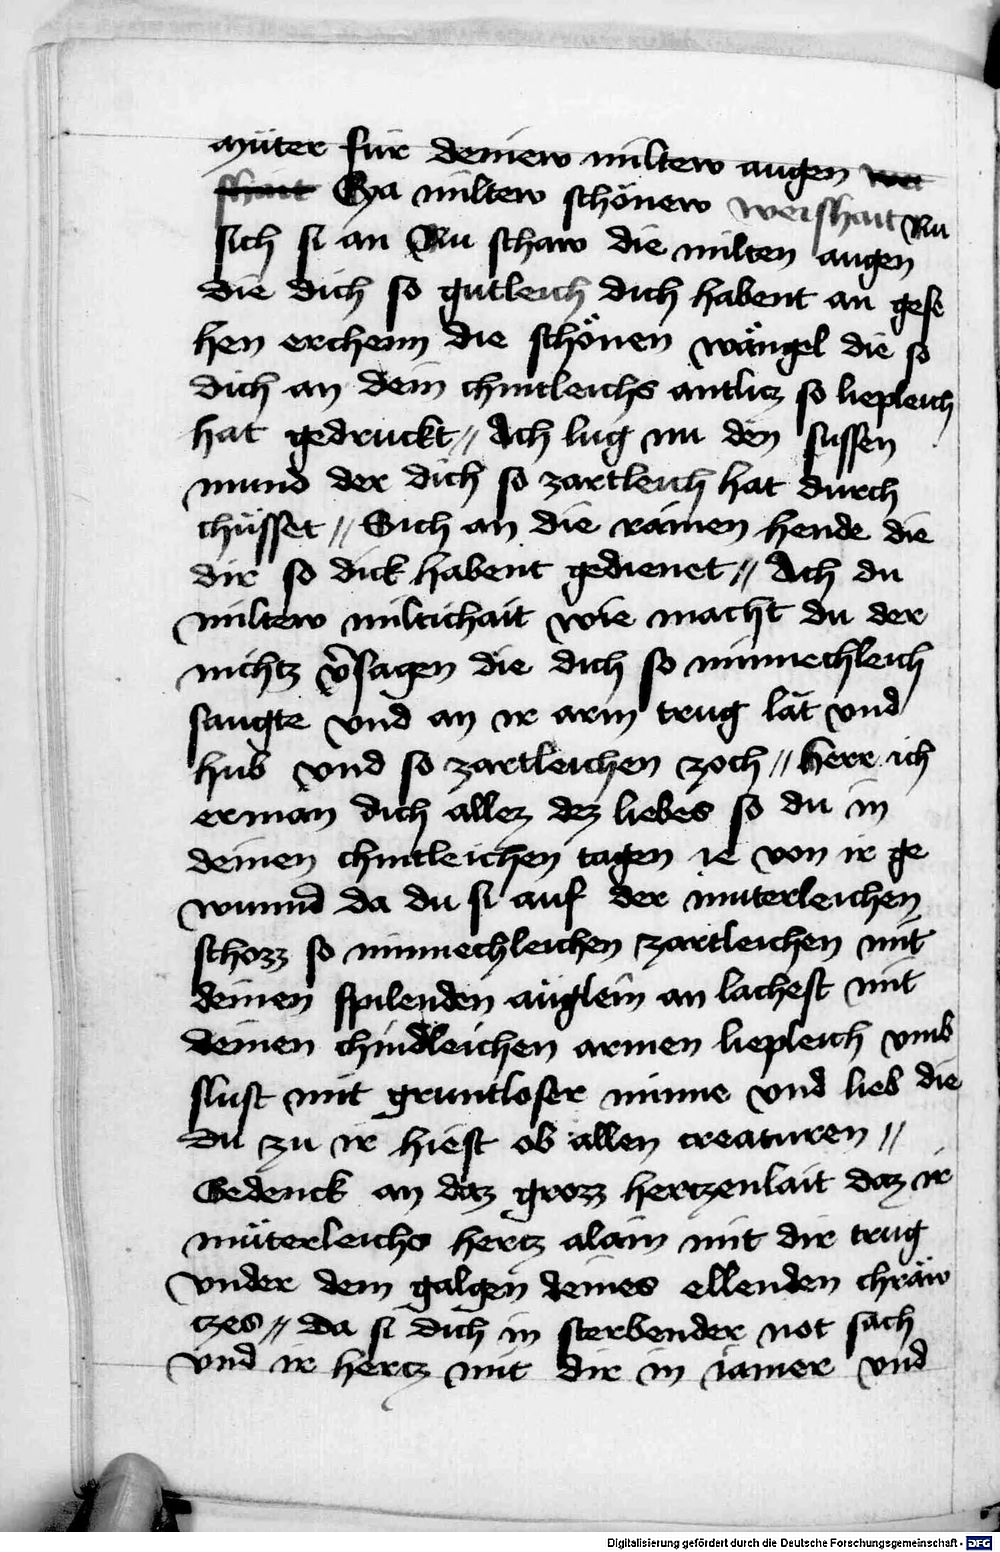 müter für deinew miltew augen wei
shait Eya miltew schönew weishait Nu
sich si an Nu schaw die milten augen
die dich so gutleich dich habent an gese
hen erchenn die schönen wängel die so
dich an dein chintleichs antlicz so liepleich
hat gedruckt // Ach lug nu den sussen
mund der dich so zartleich hat durch
chüsset // Sich an die rainen hende die
dir so dick habent gedienet // Ach du
miltew miltichait wie macht du der
nichtz v̄sagen die dich so minnechleich
saugte vnd an ir arm trug lät vnd
hub vnd so zartleichen zoch // herr ich
erman dich allez dez liebes so du in
deinen chintleichen tagen ie von ir ge
wunnd da du si auf der muterleichen
schozz so minnechleichen zartleichen mit
deinen spilenden äuglein an lachest mit
deinen chindleichen armen liepleich vmb
slust mit gruntloser minne vnd lieb die
du zu ir hiest ob allen creaturen //
Gedenck an daz grozz hertzenlait daz ir
müterleichs hertz alain mit dir trug
vnder dem galgen deines ellenden chräw
czes // da si dich in sterbender not sach
vnd ir hercz mit dir in iamer vnd
Digitalisierung gefördert durch die Deutsche Forschungsgemeinschaft - DFG